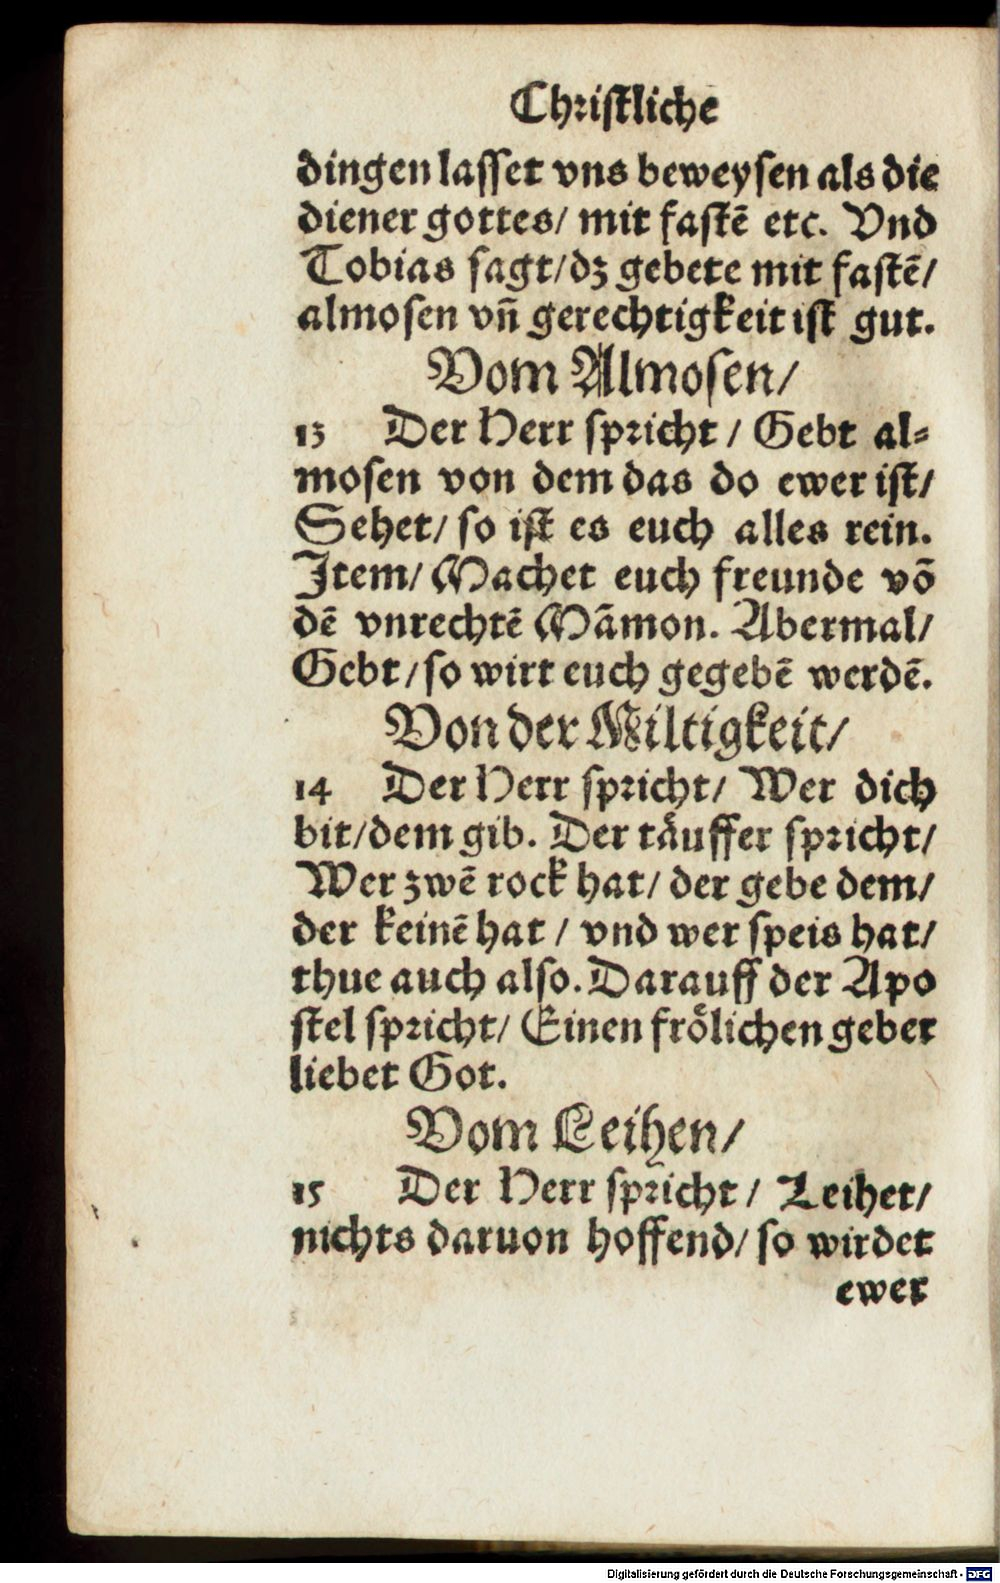 Christliche
dingen lasset vns beweysen als die
diener gottes/ mit fastē etc. Vnd
Tobias sagt/dz gebete mit fastē/
almosen vn̄ gerechtigkeit ist gut.
Vom Almosen/
13 Der Herr spricht / Gebt al⸗
mosen von dem das do ewer ist/
Sehet/ so ist es euch alles rein.
Item/ Machet euch freunde võ
dē vnrechtē Mãmon. Abermal/
Gebt/so wirt euch gegebē werdē.
Von der Miltigkeit/
14 Der Herr spricht/ Wer dich
bit/dem gib. Der täuffer spricht/
Wer zwē rock hat/ der gebe dem/
der keinē hat / vnd wer speis hat/
thue auch also. Darauff der Apo
stel spricht/ Einen frölichen geber
liebet Got.
Vom Leihen/
15 Der Herr spricht / Leihet/
nichts daruon hoffend/ so wirdet
ewer
Digitalisierung gefördert durch die Deutsche Forschungsgemeinschaft - DFG